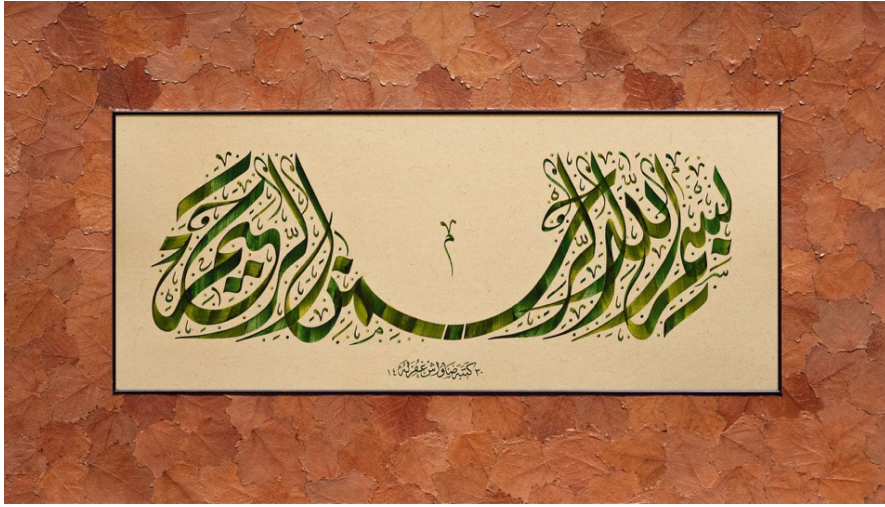 بسم الله الرحمن الرحيم
كتبه صاواش غفرله ١٤٣٠